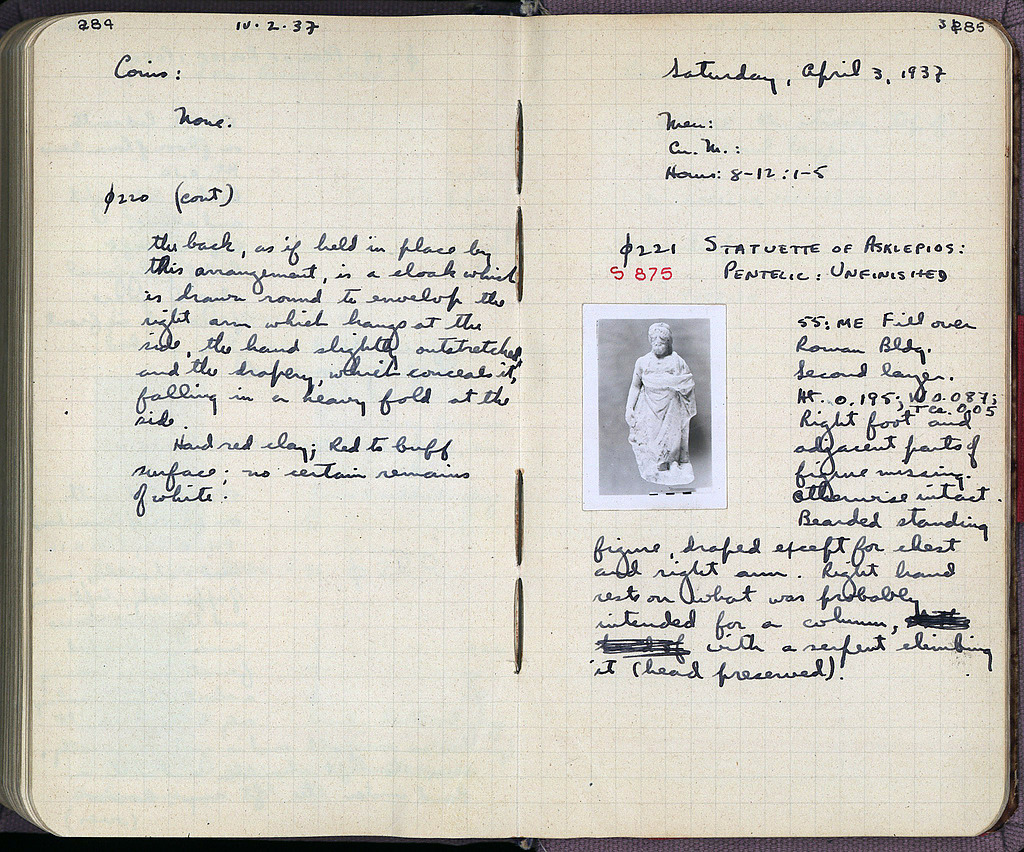 284
IV·2·37
Coins:
None.
ϕ220 (cont)
the back, as if held in place by
this arrangement, is a cloak which
is drawn round to envelop the
right arm which hangs at the
side, the hand slightly outstretched
and the drapery, which conceals it,
falling in a heavy fold at the
side.
Hard red clay; Red to buff
surface; no certain remains
of white.
285
Saturday, April 3, 1937
Men:
Cu. M.:
Hours: 8-12 : 1-5
ϕ221 STATUETTE OF ASKLEPIOS:
S 875 PENTELIC: UNFINISHED
55: ME Fill over
Roman Bldg.
Second layer.
Ht. 0.195; W 0.087;
T ca. 0.05
Right foot and
adjacent parts of
figure missing.
otherwise intact.
Bearded standing
figure, draped except for chest
and right arm. Right hand
rests on what was probably
intended for a column,
with a serpent climbing
it (head preserved).